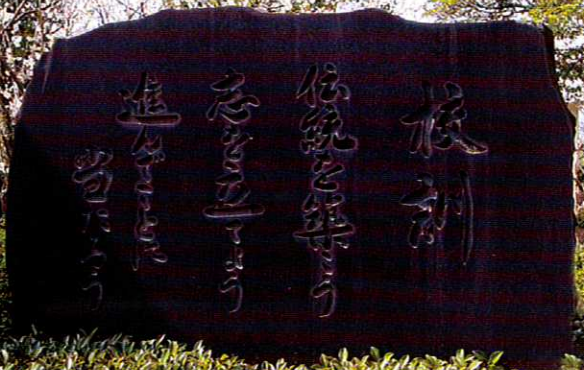 校訓
伝統を築こう
志を立てよう
進んでことに
当たろう